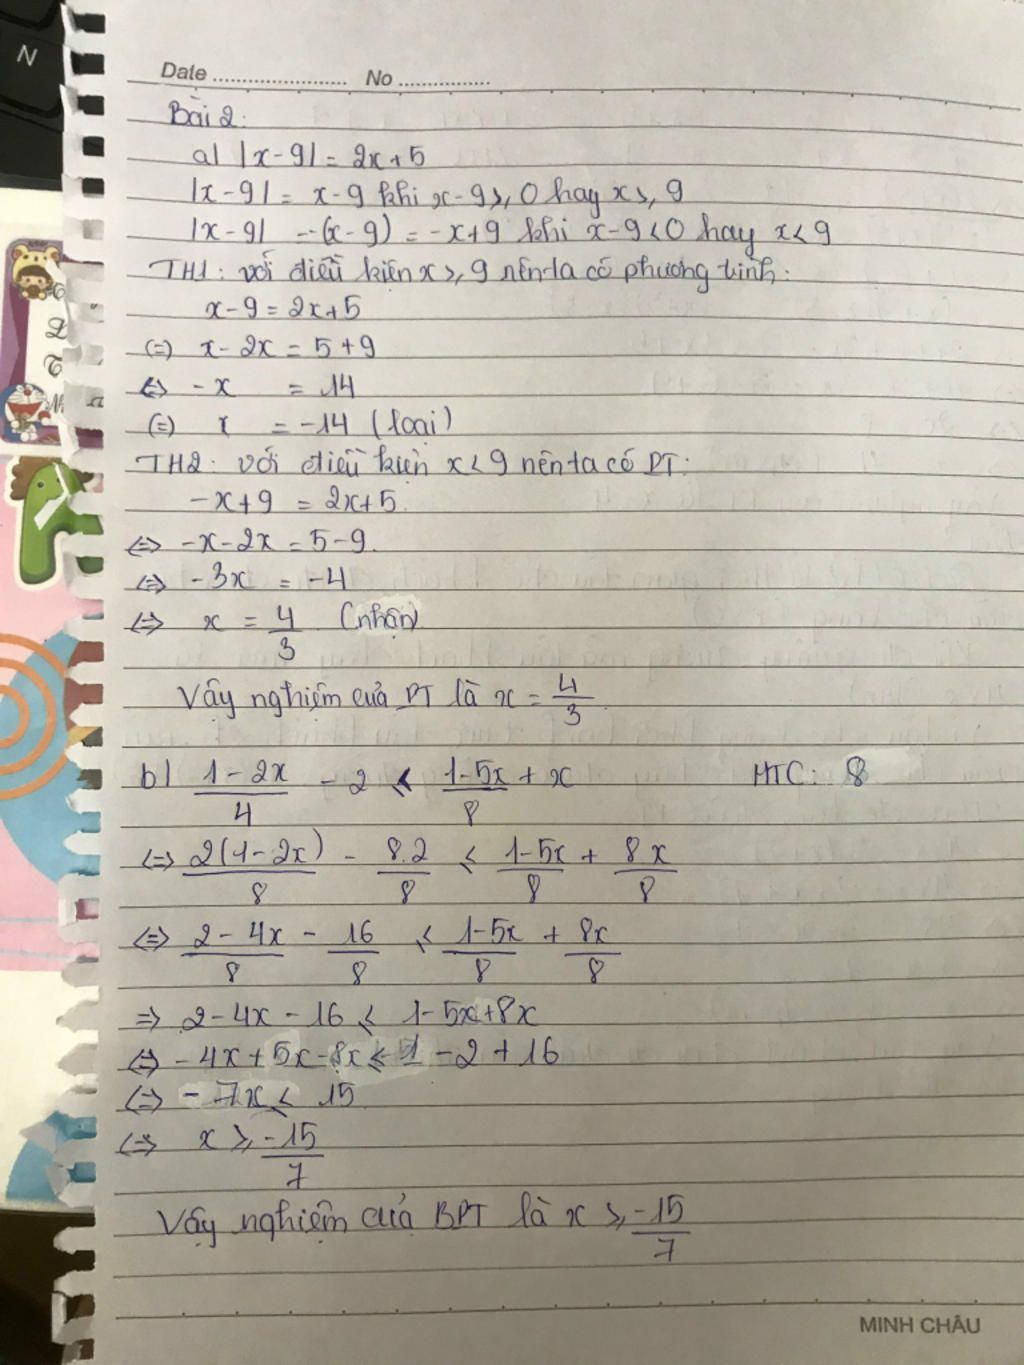 N
Date .......................... No ..................
Bài 2:
a) |x-9| = 2x+5
|x-9| = x-9 khi x-9 ⩾ 0 hay x ⩾ 9
|x-9| = -(x-9) = -x+9 khi x-9 < 0 hay x < 9
TH1: với điều kiện x ⩾ 9 nên ta có phương trình:
x-9 = 2x+5
(=) x-2x = 5+9
<=> -x = 14
(=) x = -14 (loại)
TH2: với điều kiện x < 9 nên ta có PT:
-x+9 = 2x+5
<=> -x-2x = 5-9.
<=> -3x = -4
<=> x = 4/3 (nhận)
Vậy nghiệm của PT là x = 4/3.
b) (1-2x)/4 - 2 ⩽ (1-5x)/8 + x MTC: 8
<=> 2(1-2x)/8 - 8.2/8 ⩽ (1-5x)/8 + 8x/8
<=> (2-4x)/8 - 16/8 ⩽ (1-5x)/8 + 8x/8
=> 2-4x-16 ⩽ 1-5x+8x
<=> -4x+5x-8x ⩽ 1-2+16
<=> -7x ⩽ 15
<=> x ⩾ -15/7
Vậy nghiệm của BPT là x ⩾ -15/7
MINH CHÂU